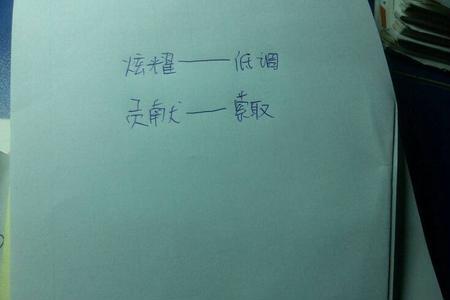 炫耀——低调
贡献——索取